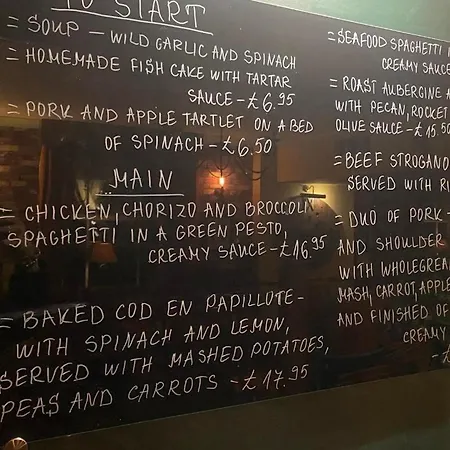 TO START
= SOUP – WILD GARLIC AND SPINACH
= HOMEMADE FISH CAKE WITH TARTAR
SAUCE – £6.95
= PORK AND APPLE TARTLET ON A BED
OF SPINACH – £6.50
MAIN
= CHICKEN, CHORIZO AND BROCCOLI
SPAGHETTI IN A GREEN PESTO,
CREAMY SAUCE – £16.95
= BAKED COD EN PAPILLOTE –
WITH SPINACH AND LEMON,
SERVED WITH MASHED POTATOES,
PEAS AND CARROTS – £17.95
= SEAFOOD SPAGHETTI
CREAMY SAUCE
= ROAST AUBERGINE
WITH PECAN, ROCKET
OLIVE SAUCE – £15.50
= BEEF STROGANO
SERVED WITH RI
= DUO OF PORK –
AND SHOULDER
WITH WHOLEGRA
MASH, CARROT, APPLE
AND FINISHED OF
CREAMY
– £